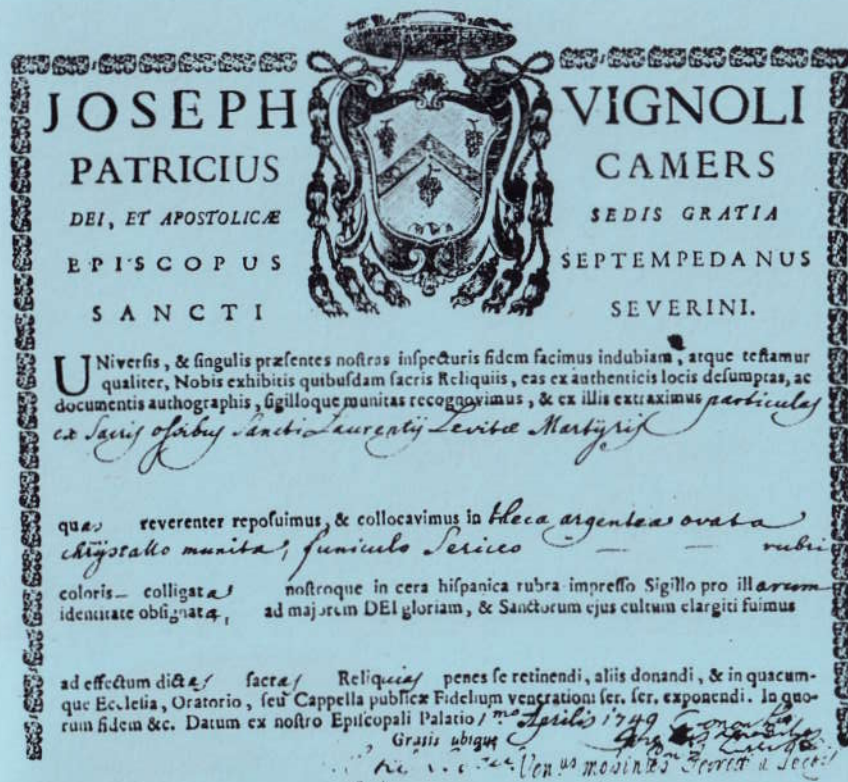 JOSEPH VIGNOLI
PATRICIUS CAMERS
DEI, ET APOSTOLICÆ SEDIS GRATIA
EPISCOPUS SEPTEMPEDANUS
SANCTI SEVERINI.
UNiverſis, & ſingulis præſentes noſtras inſpecturis fidem facimus indubiam, atque teſtamur
qualiter, Nobis exhibitis quibuſdam ſacris Reliquiis, eas ex authenticis locis deſumptas, ac
documentis authographis, ſigilloque munitas recognovimus, & ex illis extraximus particulas
ex Sacris oſsibus Sancti Laurentij Levitæ Martyris
quas reverenter repoſuimus, & collocavimus in theca argentea ovata
chrÿstallo munita, funiculo Sericeo — — rubri
coloris colligata noſtroque in cera hiſpanica rubra impreſſo Sigillo pro illarum
identitate obſignata, ad majorem DEI gloriam, & Sanctorum ejus cultum elargiti fuimus
ad effectum dictas ſacras Reliquias penes ſe retinendi, aliis donandi, & in quacum-
que Eccleſia, Oratorio, ſeu Cappella publicæ Fidelium venerationi ſer. ſer. exponendi. In quo-
rum fidem &c. Datum ex noſtro Epiſcopali Palatio 1.mo Aprilis 1749
Gratis ubique